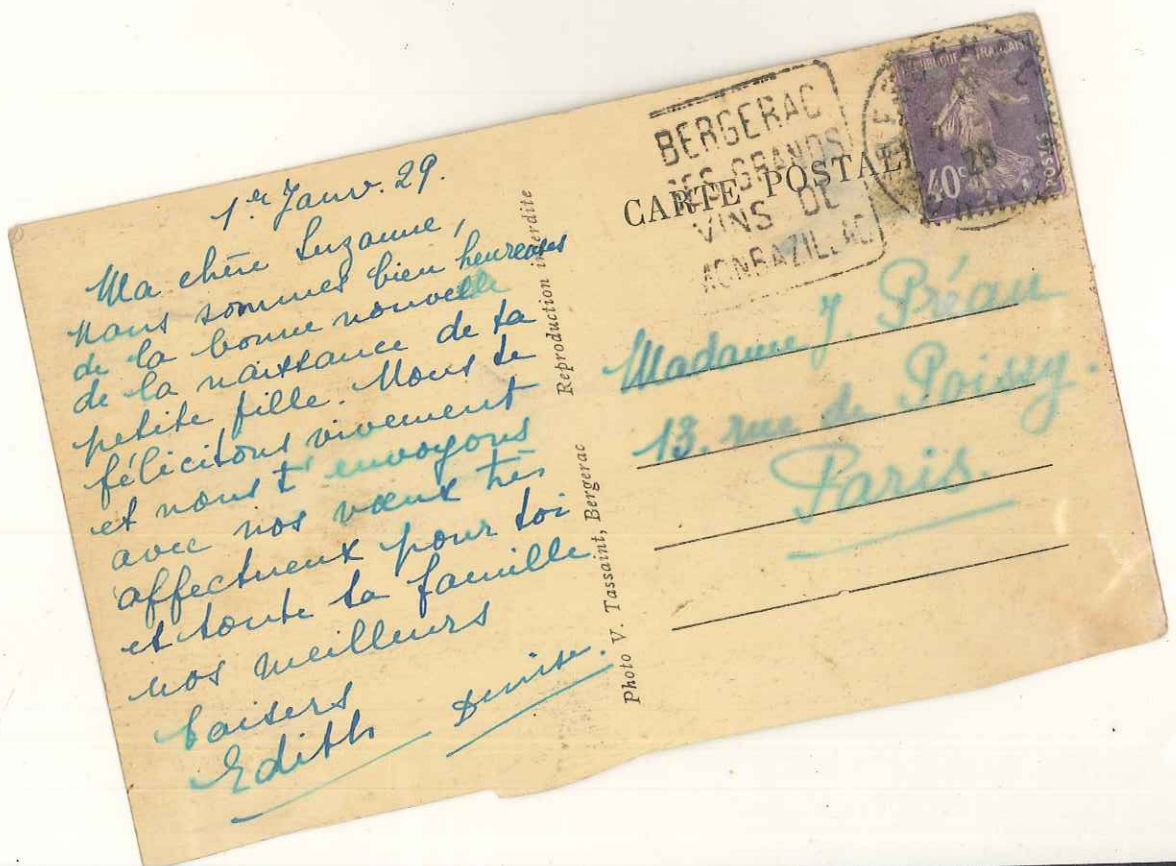 1er Janv. 29.
Ma chère Suzanne,
nous sommes bien heureuses
de la bonne nouvelle
de la naissance de ta
petite fille. Nous te
félicitons vivement
et nous t'envoyons
avec nos vœux très
affectueux pour toi
et toute ta famille
nos meilleurs
baisers
Edith Denise.
Reproduction interdite
Photo V. Tassaint, Bergerac
BERGERAC
SES GRANDS
VINS DE
MONBAZILLAC
CARTE POSTALE
REPUBLIQUE FRANÇAISE
40c
POSTES
29
Madame J. Préau
13, rue de Poissy.
Paris.